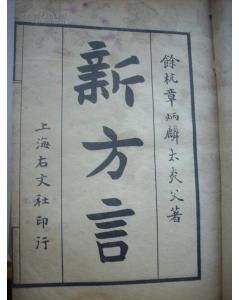 餘杭章炳麟太炎父著
新方言
上海右文社印行